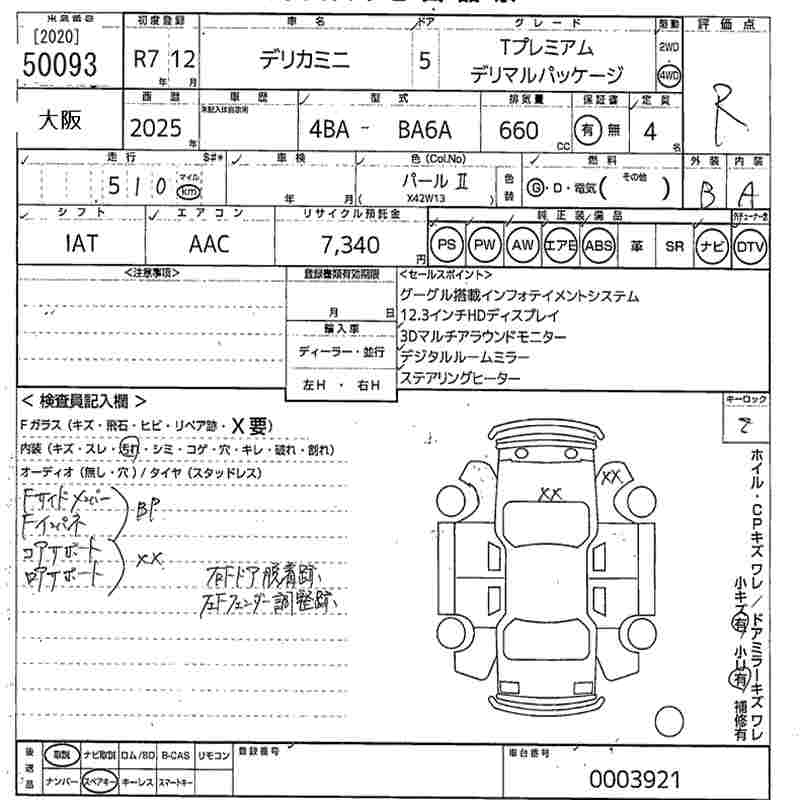 [2020]
50093
初度登録
R7 12
年 月
車名
デリカミニ
ドア
5
グレード
Tプレミアム
デリマルパッケージ
駆動
2WD
4WD
評価点
R
大阪
西暦
2025
年
車歴
型式
4BA - BA6A
排気量
660
CC
保証書
有 無
定員
4
名
走行
5 1 0
マイル
km
車検
年 月
色(Col.No)
パール Ⅱ
( X42W13 )
色装
燃料
G・D・電気( その他 )
外装
B
内装
A
シフト
IAT
エアコン
AAC
リサイクル預託金
7,340
円
純正装備品
PS PW AW エアB ABS 革 SR ナビ DTV
<注意事項>
登録書類有効期限
月 日
輸入車
ディーラー・並行
左H ・ 右H
<セールスポイント>
グーグル搭載インフォテイメントシステム
12.3インチHDディスプレイ
3Dマルチアラウンドモニター
デジタルルームミラー
ステアリングヒーター
< 検査員記入欄 >
Fガラス(キズ・飛石・ヒビ・リペア跡・X要)
内装(キズ・スレ・汚れ・シミ・コゲ・穴・キレ・破れ・割れ)
オーディオ(無し・穴)/タイヤ(スタッドレス)
Fサイドメンバー
Fインパネ
BP
コアサポート
ロアサポート
XX
右Fドア脱着跡
左Fフェンダー調整跡
XX
XX
キーロック
2
ホイル・CPキズワレ/ドアミラーキズワレ
小キズ有 小U有 補修有
後送品
取説 ナビ取説 ロム/SD B-CAS リモコン
ナンバー スペアキー キーレス スマートキー
登録番号
車台番号
0003921